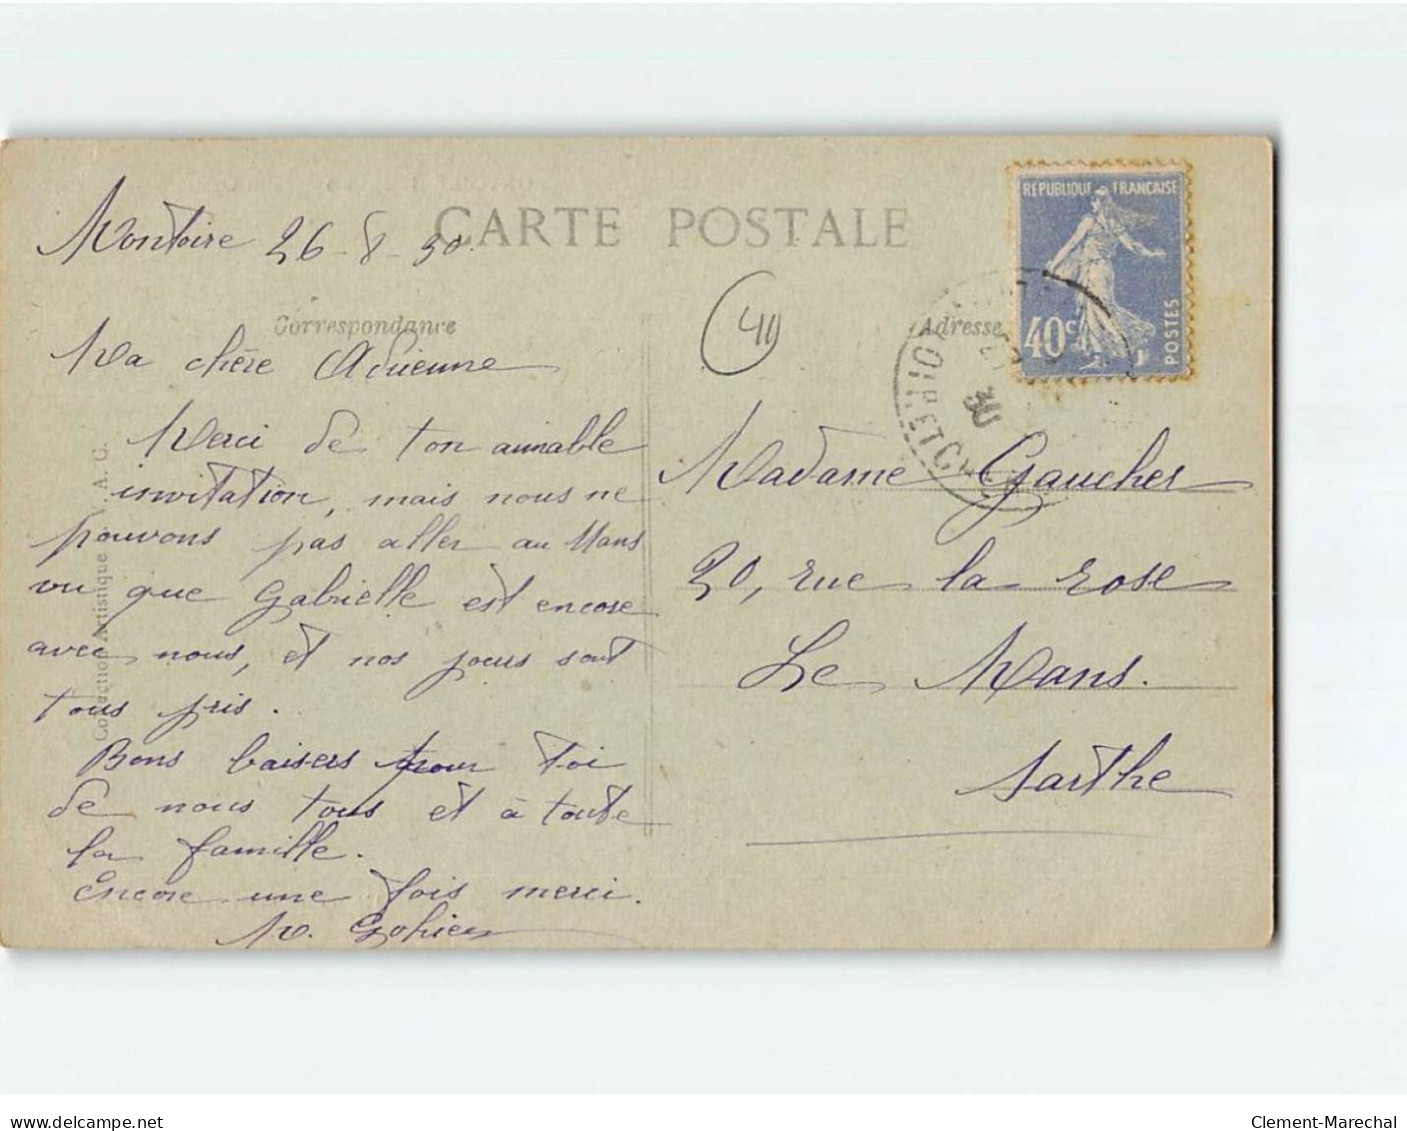 CARTE POSTALE
Montoire 26-8-30.
Correspondance
Ma chère Adrienne
Merci de ton aimable
invitation, mais nous ne
pouvons pas aller au Mans
vu que Gabrielle est encore
avec nous, et nos jours sont
tous pris.
Bons baisers pour toi
de nous tous et à toute
la famille.
Encore une fois merci.
M. Gohier
Collection Artistique V. A. C.
41
REPUBLIQUE FRANÇAISE
40c
POSTES
Adresse
30
LOIR-ET-CHER
Madame Gaucher
20, rue la rose
Le Mans.
Sarthe
www.delcampe.net
Clement-Marechal